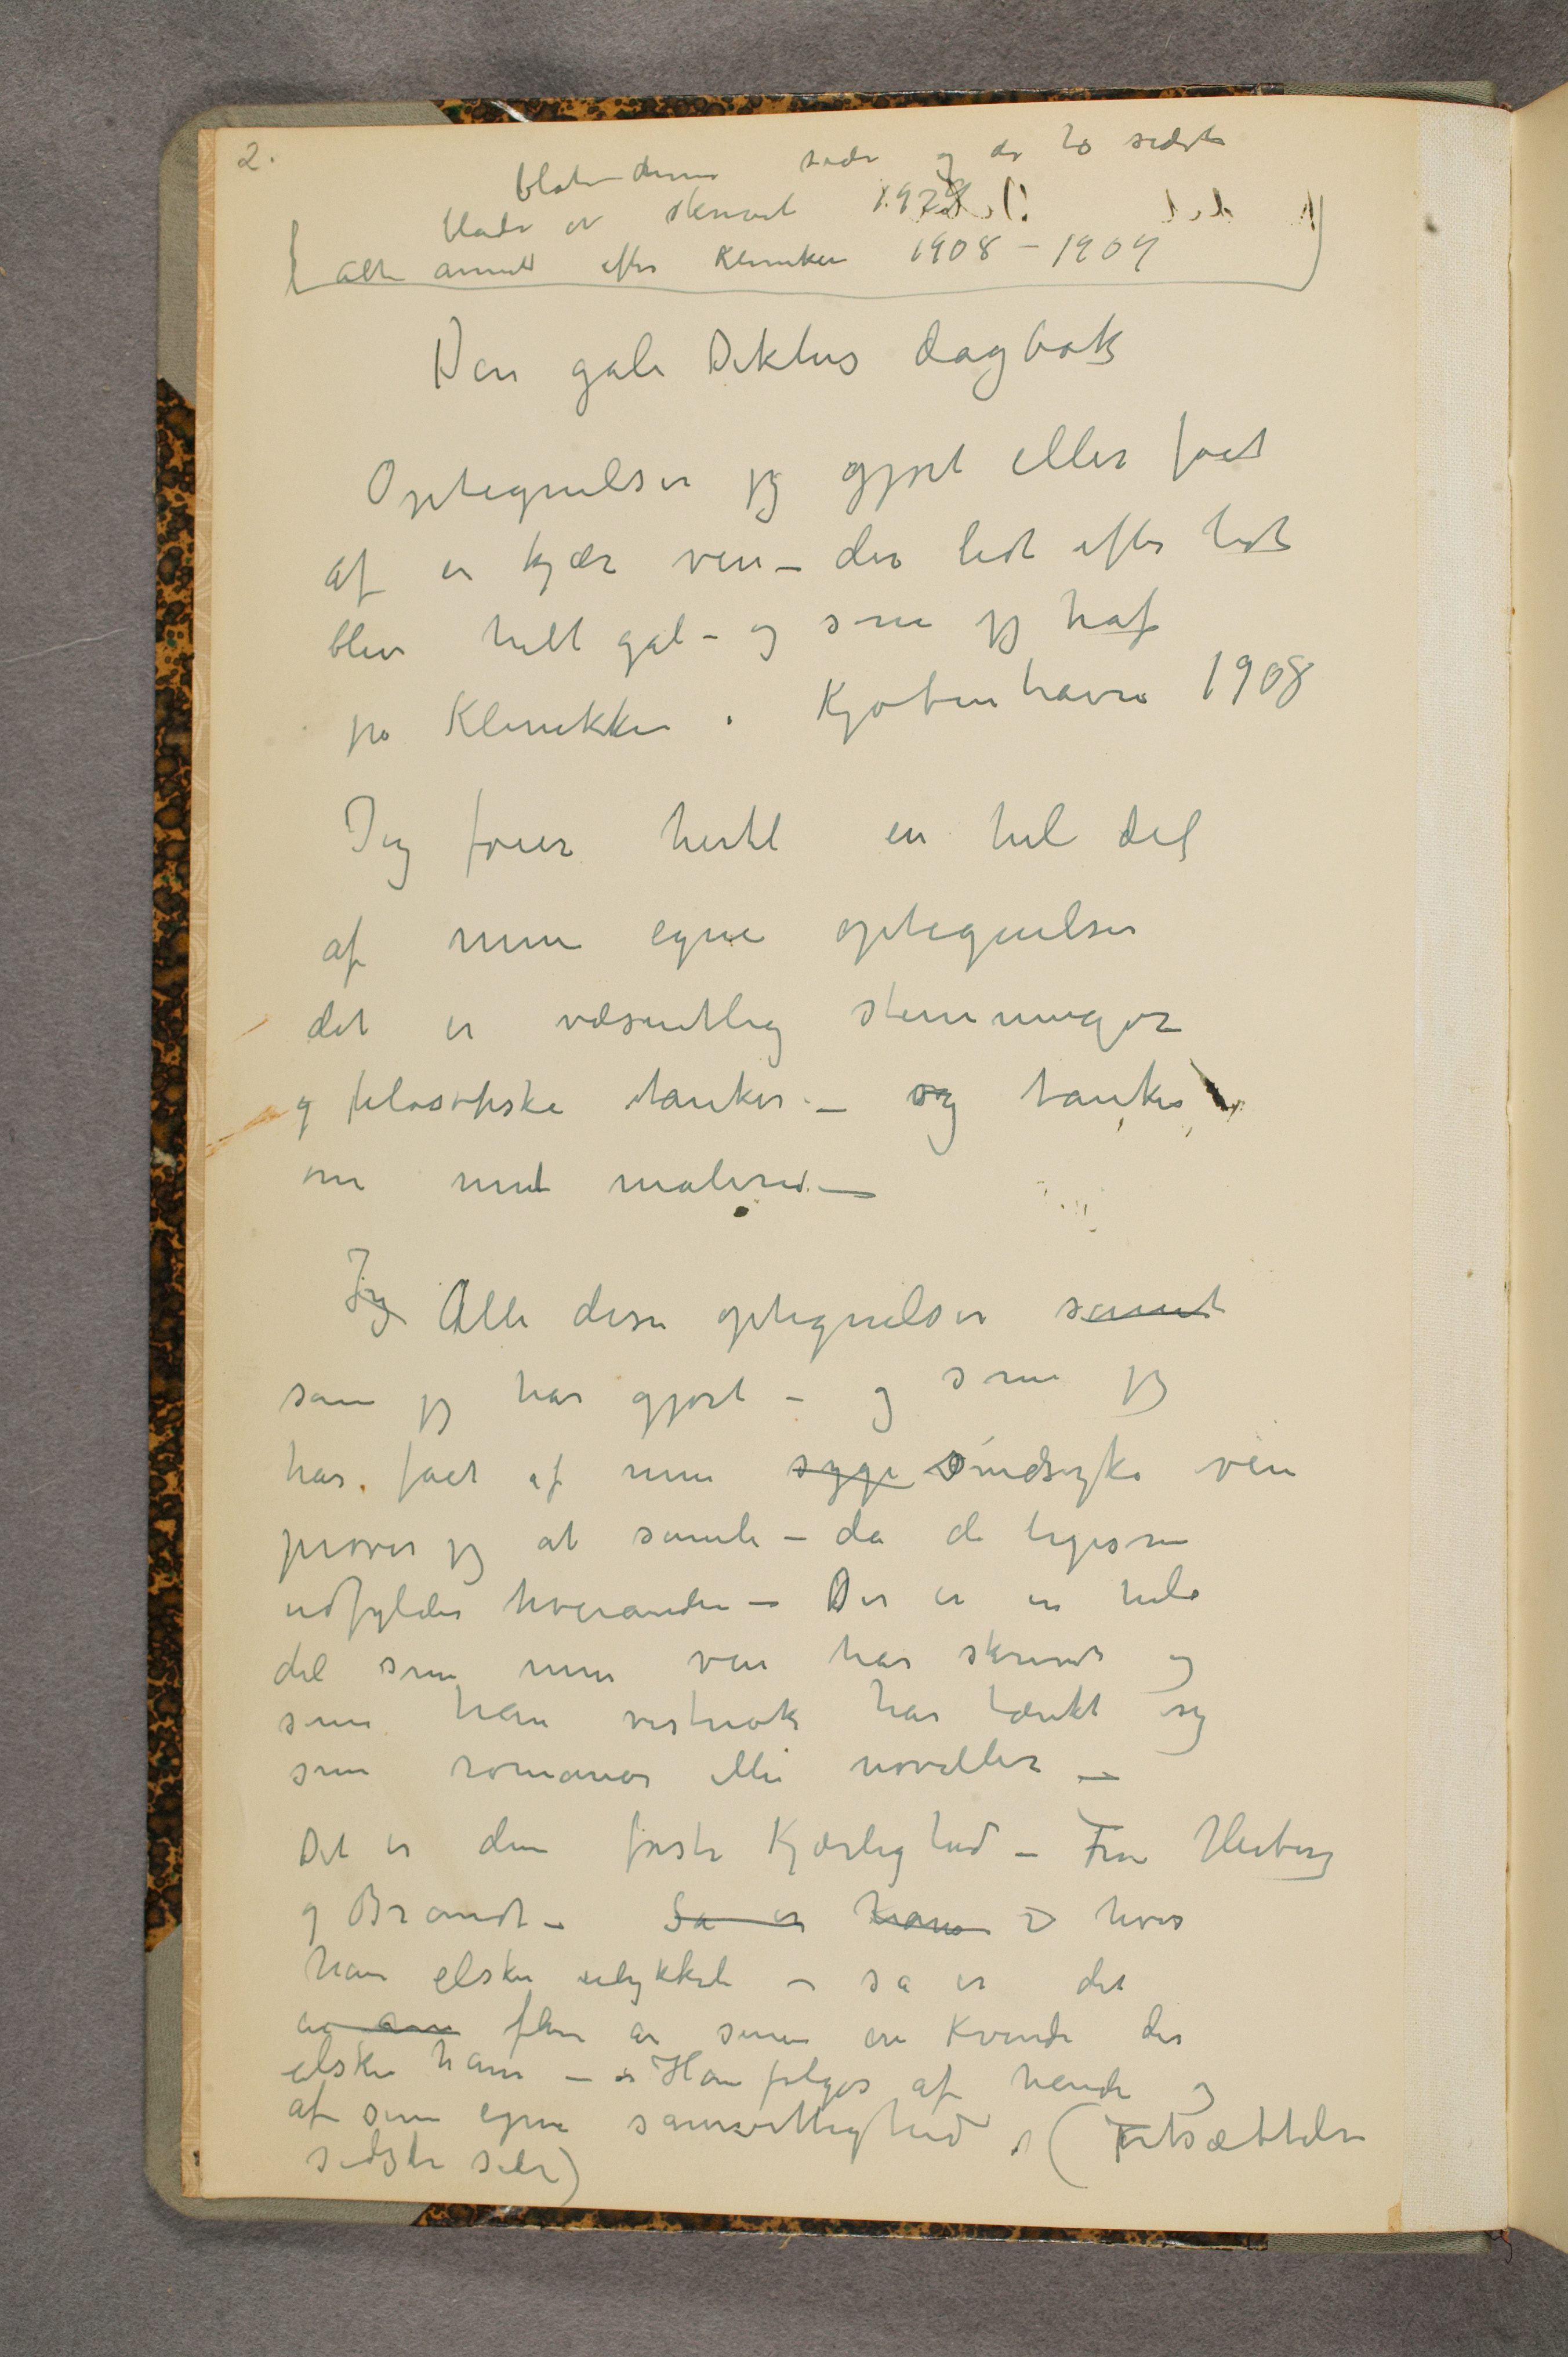 2.
blot denne side og de to sidste
blade er skrevet 1928
alt annet efter Kliniken 1908 – 1909
Den gale Dikters dagbok
Optegnelser jeg gjort eller fåt
af en kjær ven – der lidt efter lidt
blev helt gal – og som jeg traf
på Klinikken i Kjøbenhavn 1908
Jeg føier hertil en hel del
af mine egne optegnelser
det er væsentlig stemninger
og filosofiske tanker – og tanker
om mit maleri –
Jeg Alle disse optegnelser samt
som jeg har gjort – og som jeg
har fåt af min syge sindsyke ven
prøver jeg at samle – da de ligesom
udfylder hverandre – Der er en hel
del som min ven har skrevet og
som han vistnok har tænkt sig
som romaner eller noveller –
Det er den første Kjærlighed – Fru Heiberg
og Brandt – Så er hans hvis
han elsker ulykkeli – så er det
flere år senere en Kvinde der
elsker ham – Han følges af hende og
af sin egen samvittighed (Fortsættelse
sidste side)